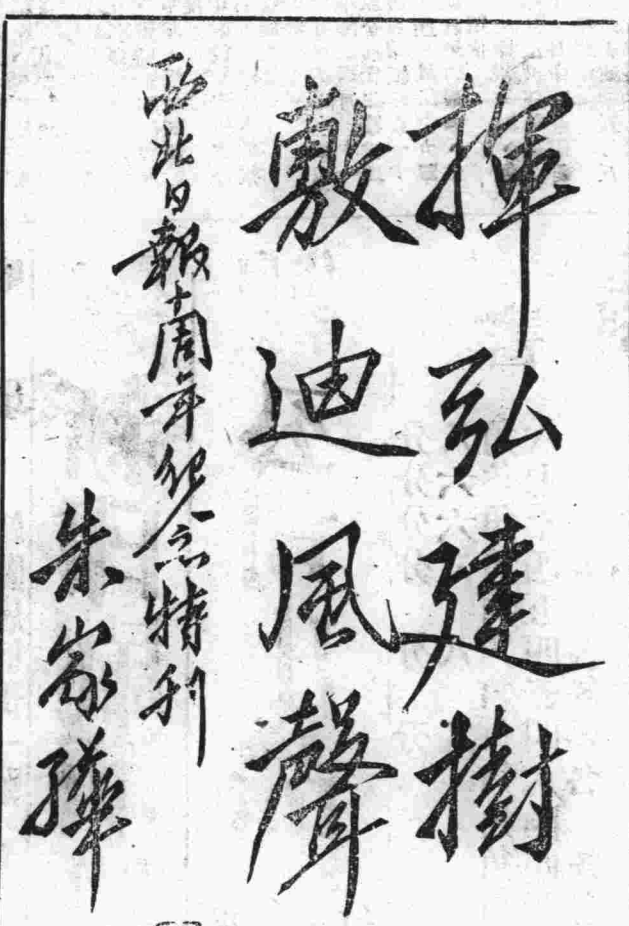 揮弘建樹
敷迪風聲
西北日報十周年紀念特刊
朱家驊